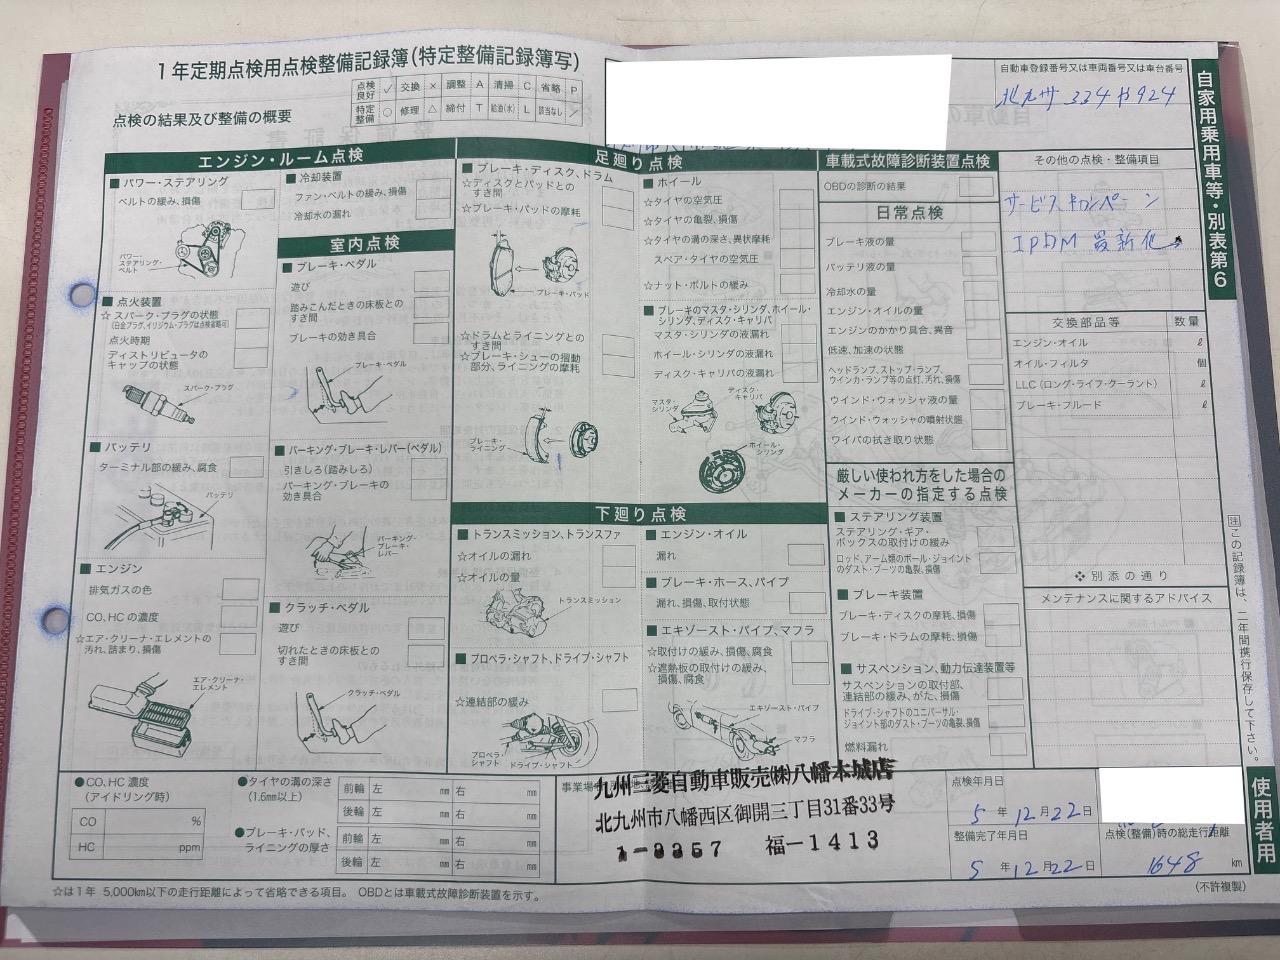 1年定期点検用点検整備記録簿(特定整備記録簿写)
点検の結果及び整備の概要
点検良好 ✓ 交換 × 調整 A 清掃 C 省略 P
特定整備 ○ 修理 △ 締付 T 給油(水) L 該当なし /
自動車登録番号又は車両番号又は車台番号
北九州 334 や924
自家用乗用車等・別表第6
エンジン・ルーム点検
■パワー・ステアリング
ベルトの緩み、損傷
パワー・ステアリング・ベルト
■点火装置
☆スパーク・プラグの状態
(白金プラグ、イリジウム・プラグは点検省略可)
点火時期
ディストリビュータのキャップの状態
スパーク・プラグ
■バッテリ
ターミナル部の緩み、腐食
バッテリ
■エンジン
排気ガスの色
CO、HCの濃度
☆エア・クリーナ・エレメントの汚れ、詰まり、損傷
エア・クリーナ・エレメント
■冷却装置
ファン・ベルトの緩み、損傷
冷却水の漏れ
室内点検
■ブレーキ・ペダル
遊び
踏みこんだときの床板とのすき間
ブレーキの効き具合
ブレーキ・ペダル
■パーキング・ブレーキ・レバー(ペダル)
引きしろ(踏みしろ)
パーキング・ブレーキの効き具合
パーキング・ブレーキ・レバー
■クラッチ・ペダル
遊び
切れたときの床板とのすき間
クラッチ・ペダル
足廻り点検
■ブレーキ・ディスク、ドラム
☆ディスクとパッドとのすき間
☆ブレーキ・パッドの摩耗
ブレーキ・パッド
☆ドラムとライニングとのすき間
☆ブレーキ・シューの摺動部分、ライニングの摩耗
ブレーキ・ライニング
■ホイール
☆タイヤの空気圧
☆タイヤの亀裂、損傷
☆タイヤの溝の深さ、異状摩耗
スペア・タイヤの空気圧
☆ナット・ボルトの緩み
■ブレーキのマスタ・シリンダ、ホイール・シリンダ、ディスク・キャリパ
マスタ・シリンダの液漏れ
ホイール・シリンダの液漏れ
ディスク・キャリパの液漏れ
マスタ・シリンダ
ディスク・キャリパ
ホイール・シリンダ
下廻り点検
■トランスミッション、トランスファ
☆オイルの漏れ
☆オイルの量
トランスミッション
■プロペラ・シャフト、ドライブ・シャフト
☆連結部の緩み
プロペラ・シャフト
ドライブ・シャフト
■エンジン・オイル
漏れ
■ブレーキ・ホース、パイプ
漏れ、損傷、取付状態
■エキゾースト・パイプ、マフラ
☆取付けの緩み、損傷、腐食
☆遮熱板の取付けの緩み、損傷、腐食
エキゾースト・パイプ
マフラ
車載式故障診断装置点検
OBDの診断の結果
日常点検
ブレーキ液の量
バッテリ液の量
冷却水の量
エンジン・オイルの量
エンジンのかかり具合、異音
低速、加速の状態
ヘッドランプ、ストップ・ランプ、ウインカ・ランプ等の点灯、汚れ、損傷
ウインド・ウォッシャ液の量
ウインド・ウォッシャの噴射状態
ワイパの拭き取り状態
厳しい使われ方をした場合のメーカーの指定する点検
■ステアリング装置
ステアリング・ギア・ボックスの取付けの緩み
ロッド、アーム類のボール・ジョイントのダスト・ブーツの亀裂、損傷
■ブレーキ装置
ブレーキ・ディスクの摩耗、損傷
ブレーキ・ドラムの摩耗、損傷
■サスペンション、動力伝達装置等
サスペンションの取付部、連結部の緩み、がた、損傷
ドライブ・シャフトのユニバーサル・ジョイント部のダスト・ブーツの亀裂、損傷
燃料漏れ
その他の点検・整備項目
サービスキャンペーン
IPDM 最新化
交換部品等 数量
エンジン・オイル ℓ
オイル・フィルタ 個
LLC(ロング・ライフ・クーラント) ℓ
ブレーキ・フルード ℓ
❖別添の通り
メンテナンスに関するアドバイス
注この記録簿は、二年間携行保存して下さい。
使用者用
●CO、HC濃度
(アイドリング時)
CO %
HC ppm
●タイヤの溝の深さ
(1.6mm以上)
前輪 左 mm 右 mm
後輪 左 mm 右 mm
●ブレーキ・パッド、ライニングの厚さ
前輪 左 mm 右 mm
後輪 左 mm 右 mm
九州三菱自動車販売㈱八幡本城店
北九州市八幡西区御開三丁目31番33号
1-3357 福-1413
点検年月日
5年12月22日
整備完了年月日
5年12月22日
点検(整備)時の総走行距離
1648 km
(不許複製)
☆は1年 5,000km以下の走行距離によって省略できる項目。 OBDとは車載式故障診断装置を示す。